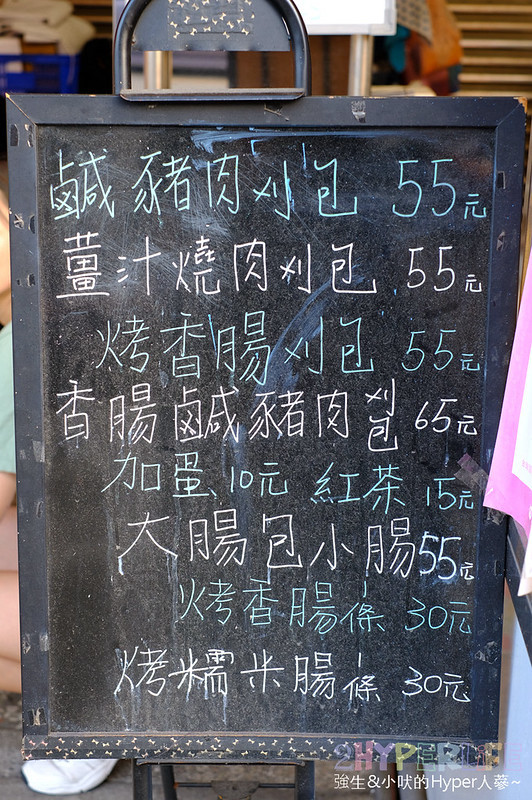 鹹豬肉刈包 55元
薑汁燒肉刈包 55元
烤香腸刈包 55元
香腸鹹豬肉刈包 65元
加蛋10元 紅茶15元
大腸包小腸55元
烤香腸條 30元
烤糯米腸條 30元
2HYPERLIFE
強生&小吠的Hyper人蔘~